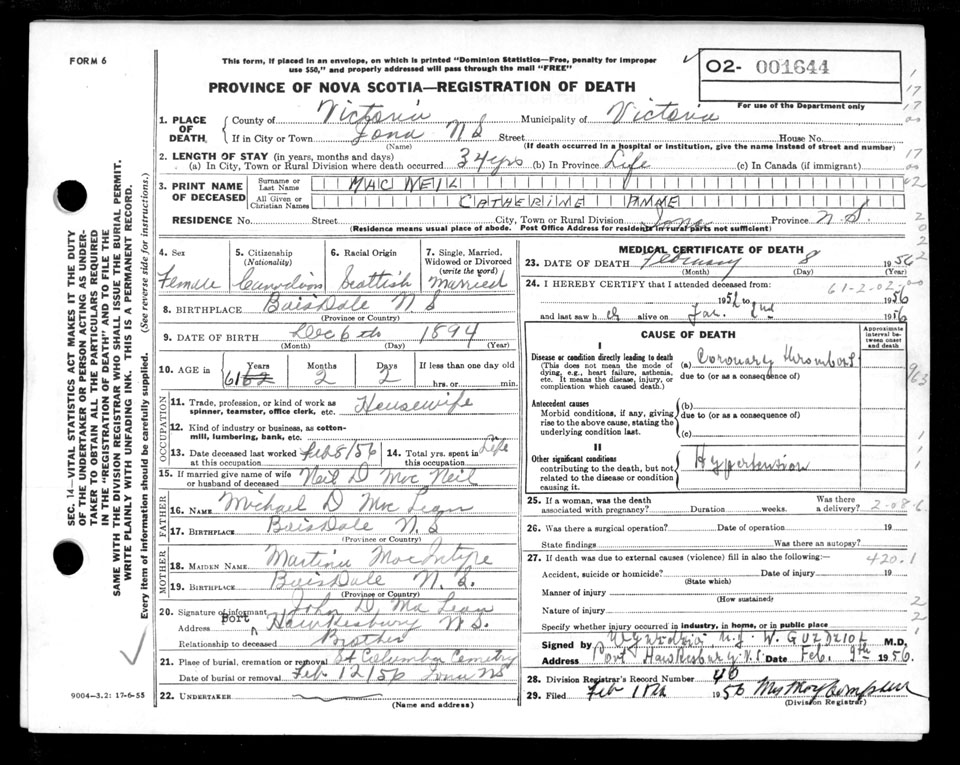 FORM 6
This form, if placed in an envelope, on which is printed "Dominion Statistics—Free, penalty for improper
use $50," and properly addressed will pass through the mail "FREE"
O2- 001644
For use of the Department only
PROVINCE OF NOVA SCOTIA—REGISTRATION OF DEATH
1. PLACE OF DEATH. County of Victoria Municipality of Victoria
If in City or Town Iona N S Street House No.
(Name) (If death occurred in a hospital or institution, give the name instead of street and number)
2. LENGTH OF STAY (in years, months and days)
(a) In City, Town or Rural Division where death occurred 34 yrs (b) In Province Life (c) In Canada (if immigrant)
3. PRINT NAME OF DECEASED Surname or Last Name MAC NEIL
All Given or Christian Names CATHERINE ANNE
RESIDENCE No. Street City, Town or Rural Division Iona Province N S.
(Residence means usual place of abode. Post Office Address for residents in rural parts not sufficient)
4. Sex 5. Citizenship (Nationality) 6. Racial Origin 7. Single, Married, Widowed or Divorced (write the word)
Female Canadian Scottish Married
8. BIRTHPLACE Boisdale N S
(Province or Country)
9. DATE OF BIRTH Dec 6th 1894
(Month) (Day) (Year)
10. AGE in Years Months Days If less than one day old
61 2 2 hrs. or min.
OCCUPATION
11. Trade, profession, or kind of work as spinner, teamster, office clerk, etc. Housewife
12. Kind of industry or business, as cotton-mill, lumbering, bank, etc.
13. Date deceased last worked at this occupation Feb 8/56 14. Total yrs. spent in this occupation Life
15. If married give name of wife or husband of deceased Neil D Mac Neil
FATHER
16. NAME Michael D Mac Lean
17. BIRTHPLACE Boisdale N. S
(Province or Country)
MOTHER
18. MAIDEN NAME MacIntyre
19. BIRTHPLACE Boisdale N. S.
(Province or Country)
20. Signature of informant John D. Mc Lean
Address Port Hawkesbury N S.
Relationship to deceased Brother
21. Place of burial, cremation or removal St Columba Cemetery
Date of burial or removal Feb 12/56 Iona NS
22. UNDERTAKER
(Name and address)
MEDICAL CERTIFICATE OF DEATH
23. DATE OF DEATH February 8 1956
(Month) (Day) (Year)
24. I HEREBY CERTIFY that I attended deceased from:
61-2-02-00
1956
and last saw h er alive on Jan. 2nd 1956
CAUSE OF DEATH
Approximate interval between onset and death
I
Disease or condition directly leading to death
(This does not mean the mode of dying, e.g., heart failure, asthenia, etc. It means the disease, injury, or complication which caused death.)
(a) Coronary thrombosis
due to (or as a consequence of)
Antecedent causes
Morbid conditions, if any, giving rise to the above cause, stating the underlying condition last.
(b)
due to (or as a consequence of)
(c)
II
Other significant conditions
contributing to the death, but not related to the disease or condition causing it.
Hypertension
25. If a woman, was the death associated with pregnancy? Duration weeks. Was there a delivery? 2-08-6
26. Was there a surgical operation? Date of operation 19
State findings Was there an autopsy?
27. If death was due to external causes (violence) fill in also the following:— 420.1
Accident, suicide or homicide? Date of injury 19
(State which)
Manner of injury
(How sustained)
Nature of injury
Specify whether injury occurred in industry, in home, or in public place
Signed by M.D.
Address Port Hawkesbury N.S. Date Feb. 9th 1956.
28. Division Registrar's Record Number 46
29. Filed Feb 1956
(Division Registrar)
SEC. 14—VITAL STATISTICS ACT MAKES IT THE DUTY
OF THE UNDERTAKER OR PERSON ACTING AS UNDER-
TAKER TO OBTAIN ALL THE PARTICULARS REQUIRED
IN THE "REGISTRATION OF DEATH" AND TO FILE THE
SAME WITH THE DIVISION REGISTRAR WHO SHALL ISSUE THE BURIAL PERMIT.
WRITE PLAINLY WITH UNFADING INK. THIS IS A PERMANENT RECORD.
Every item of information should be carefully supplied. (See reverse side for instructions.)
9004—3.2: 17-6-55